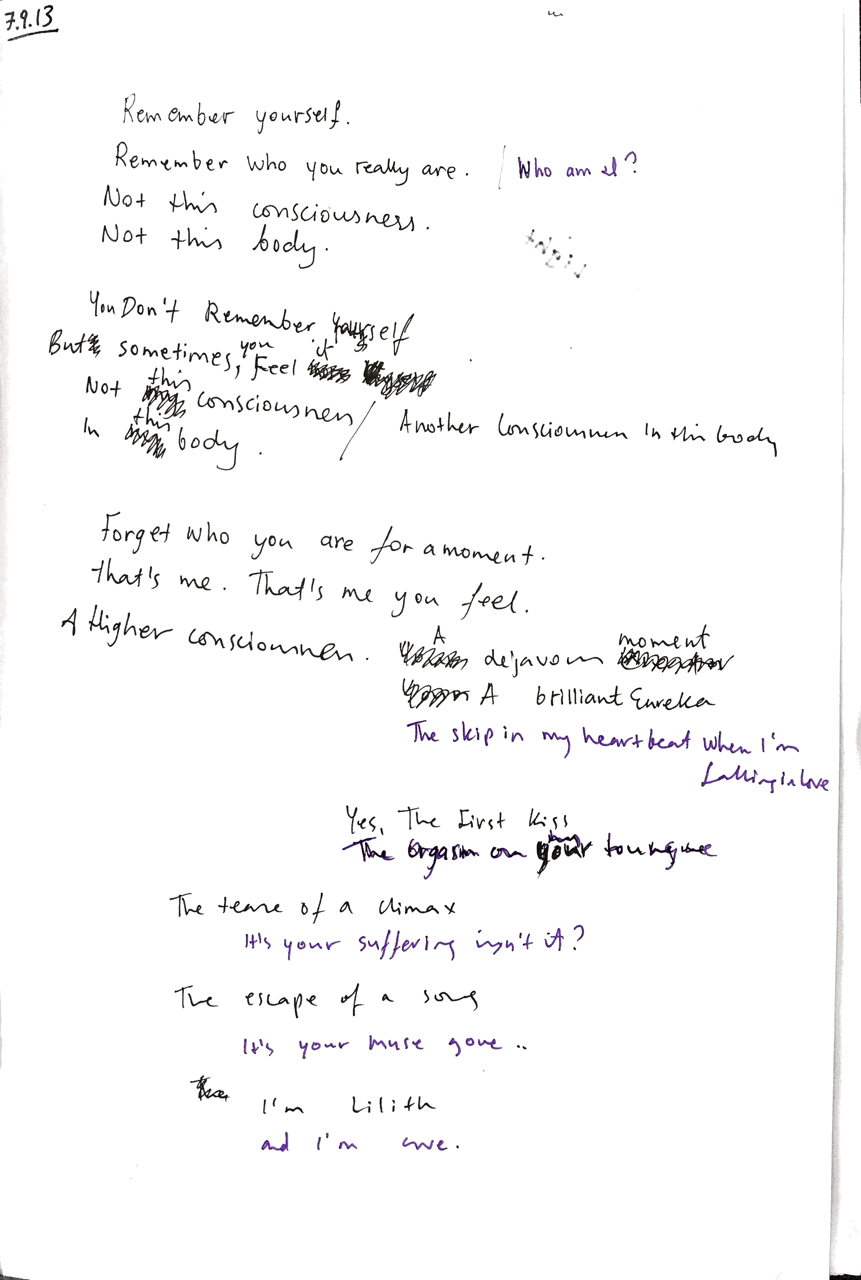 7.9.13
Remember yourself.
Remember who you really are. / Who am I?
Not this consciousness.
Not this body.
You Don't Remember yourself
But sometimes, you Feel it
Not this consciousness / Another Consciousness In this body
In this body.
Forget who you are for a moment.
that's me. That's me you feel.
A Higher consciousness.
A dejavous moment
A brilliant Eureka
The skip in my heartbeat when I'm
falling in love
Yes, The First Kiss
The Orgasm on your toungue
The tease of a climax
It's your suffering isn't it?
The escape of a song
It's your muse gone ..
I'm Lilith
and I'm eve.